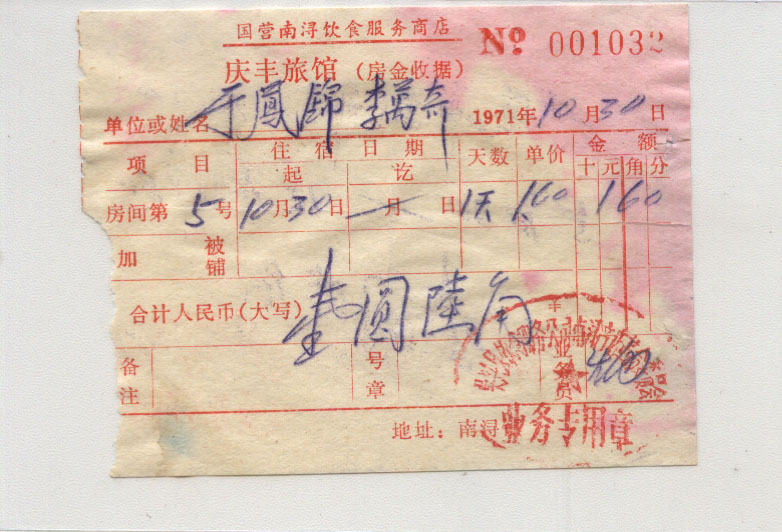 国营南浔饮食服务商店
庆丰旅馆（房金收据） Nº 001032
单位或姓名 于鳳錦 李萬奇 1971年10月30日
项目 住宿日期 天数 单价 金额
起 讫 十元角分
房间第5号 10月30日 一月 日 1天 1.60 1 6 0
加 被铺
合计人民币(大写) 壹圆陸角
备注 号章 业务员
地址：南浔
业务专用章